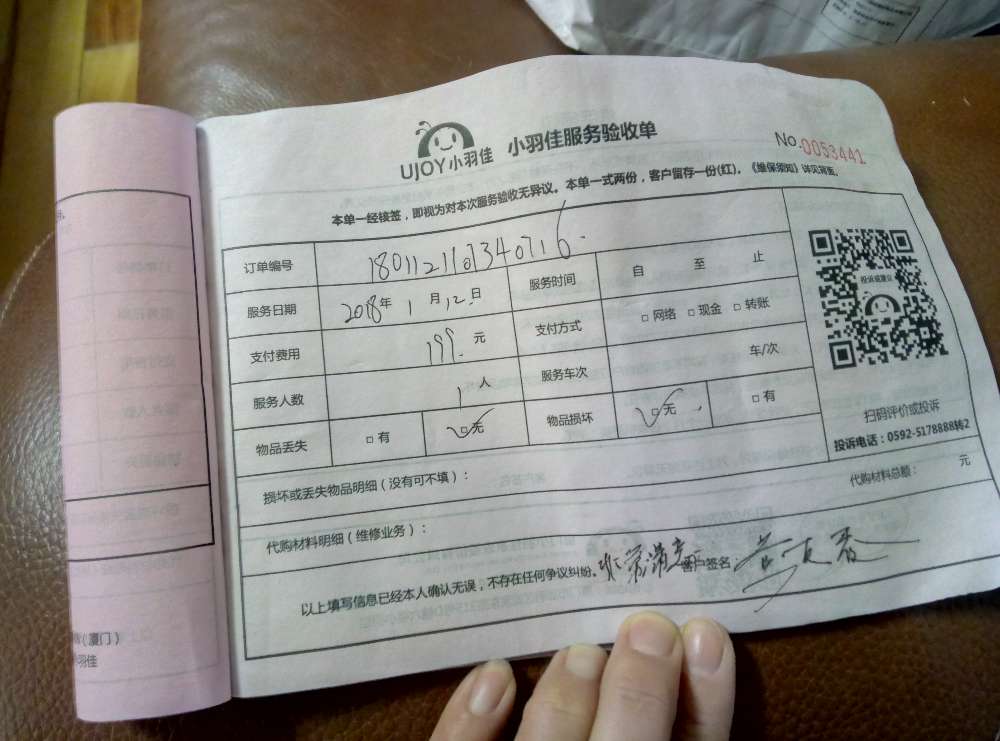 UJOY小羽佳 小羽佳服务验收单
No.0053441
本单一经接签，即视为对本次服务验收无异议。本单一式两份，客户留存一份(红)。《维保须知》详见背面。
订单编号 1801121107340716
服务日期 2018年1月12日 服务时间 自 至 止
支付费用 199.元 支付方式 □网络 □现金 □转账
服务人数 1人 服务车次 车/次
物品丢失 □有 □无 物品损坏 □无 □有
投诉或建议
扫码评价或投诉
投诉电话：0592-5178888转2
损坏或丢失物品明细（没有可不填）：
代购材料明细（维修业务）： 代购材料总额： 元
以上填写信息已经本人确认无误，不存在任何争议纠纷。非常满意 客户签名：
（厦门）
羽佳